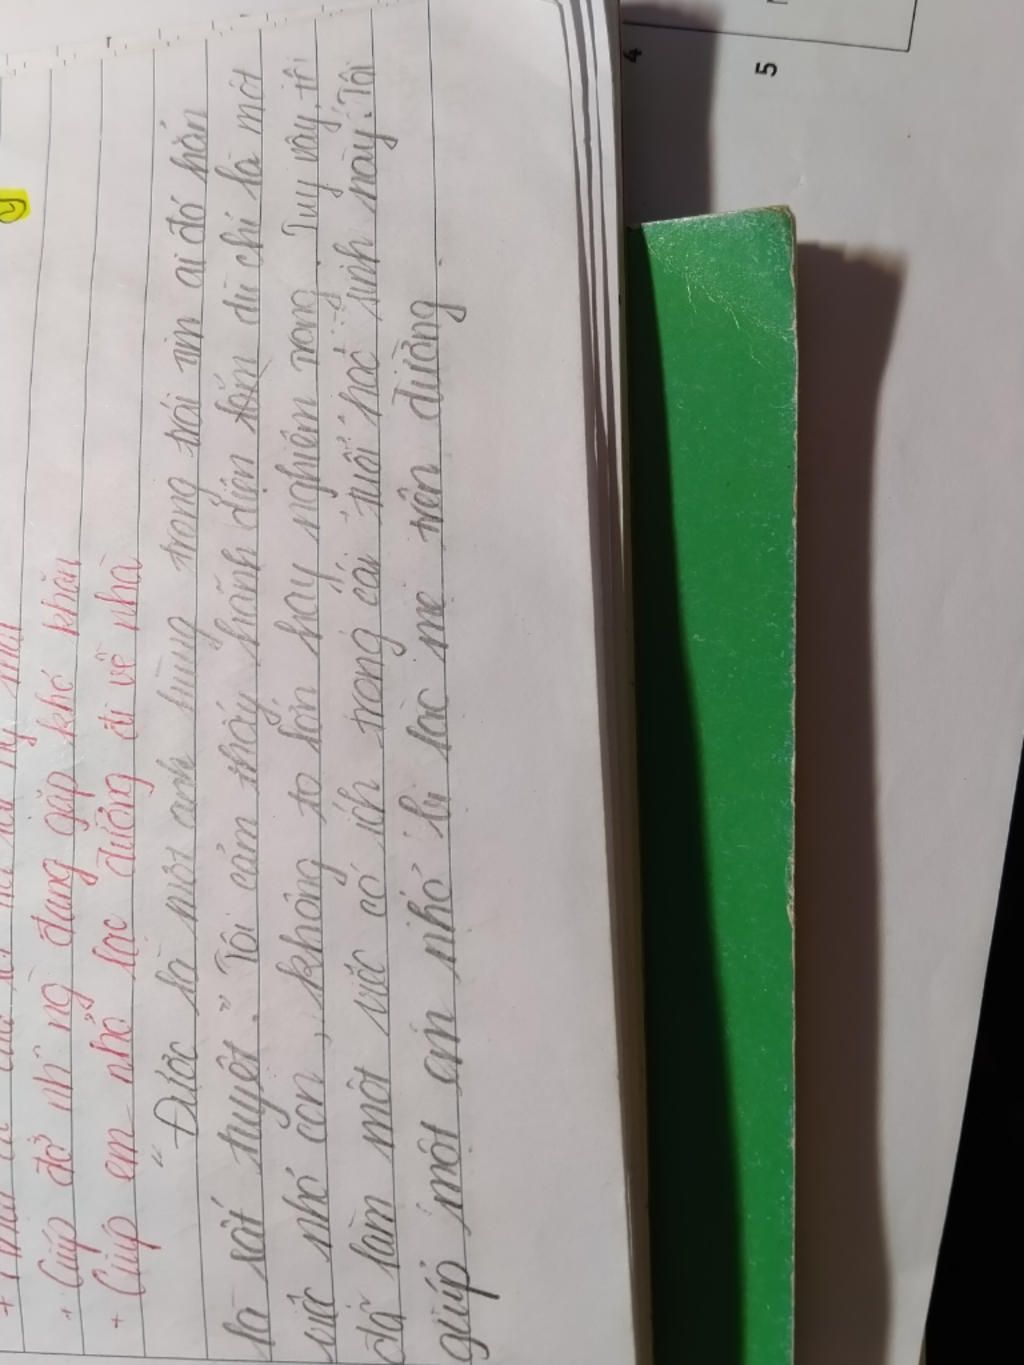 + Giúp đỡ nhỡ ng đang gặp khó khăn
+ Giúp em nhỏ lạc đường đi về nhà
" Được là một anh hùng trong trái tim ai đó hẳn
là rất tuyệt." Tôi cảm thấy hãnh diện lắm dù chỉ là một
việc nhỏ con, không to lớn hay nghiêm trọng. Tuy vậy, tôi
đã làm một việc có ích trong cái tuổi học sinh này! Tôi
giúp một em nhỏ bị lạc mẹ trên đường.
4
5